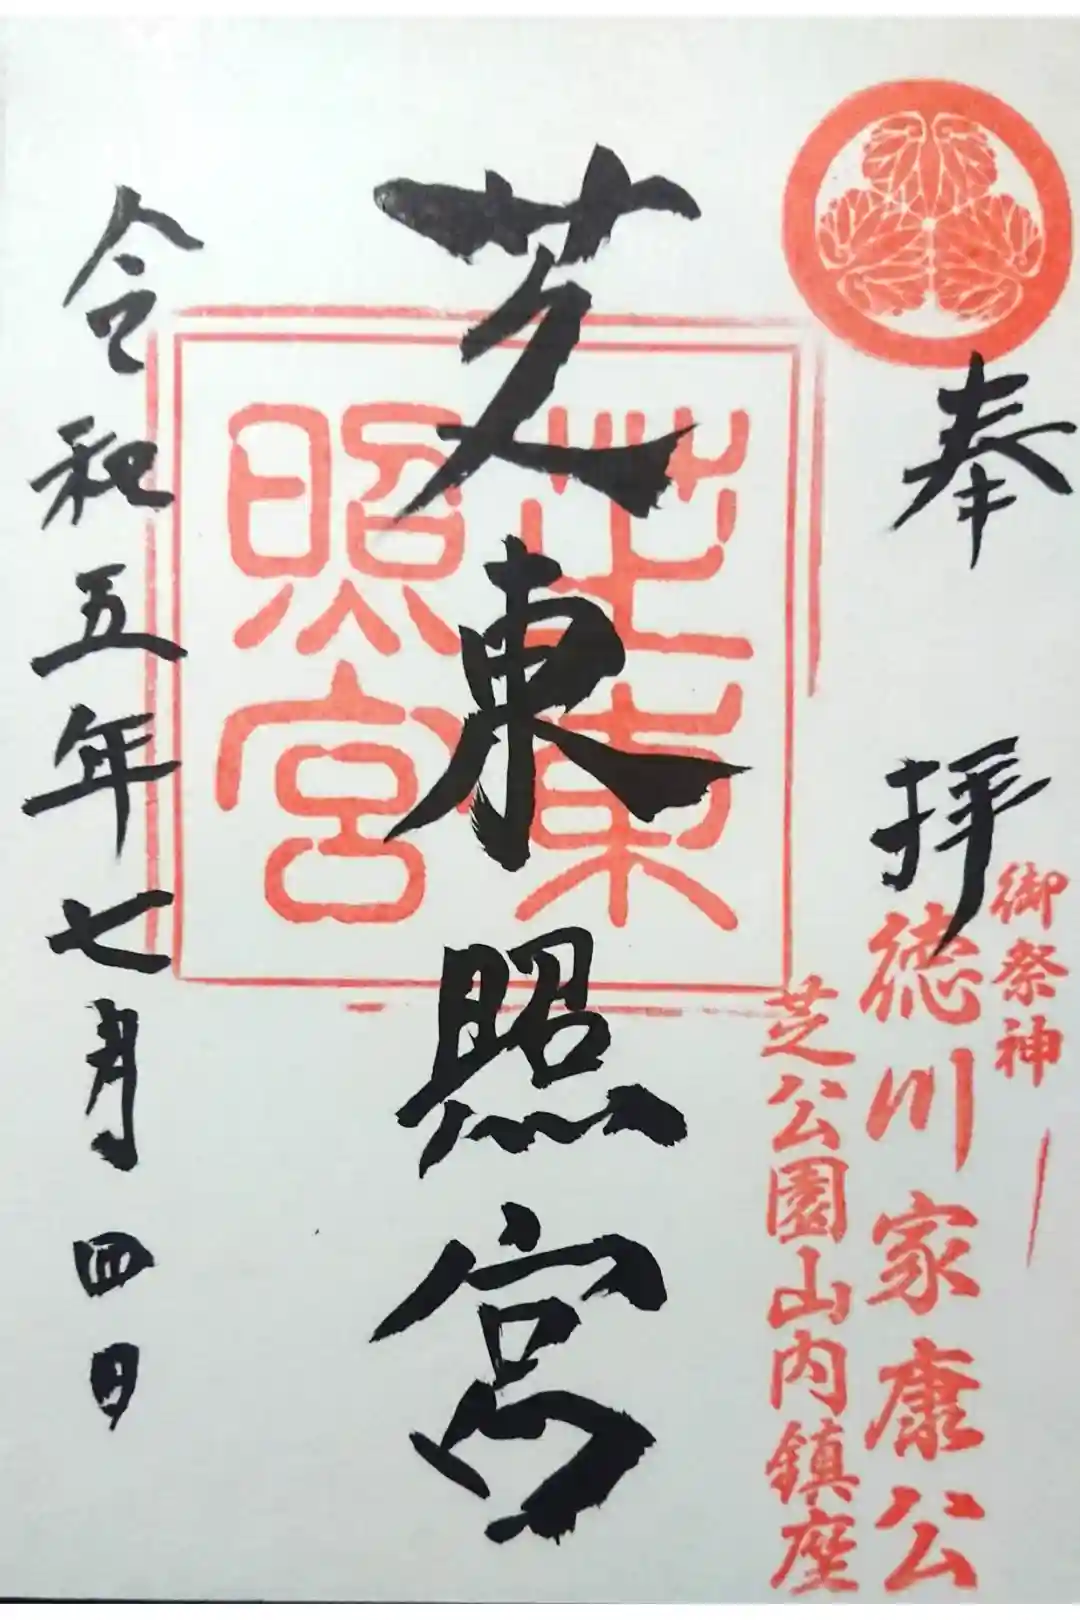 奉拝
御祭神
徳川家康公
芝公園山内鎮座
芝東照宮
芝東
照宮
令和五年七月四日